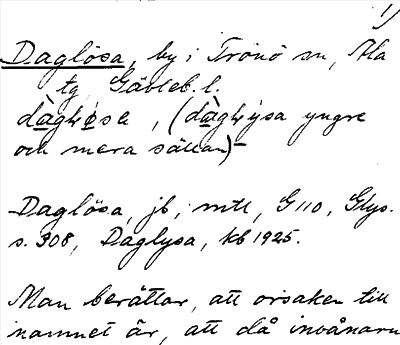 1)
Daglösa, by i Trönö sn, Ala
tg Gävleb. l.
och mera sällan)
Daglösa, jb, mtl, G 110, Glys.
s. 308, Daglysa, kb 1925.
Man berättar, att orsaken till
namnet är, att då invånarna